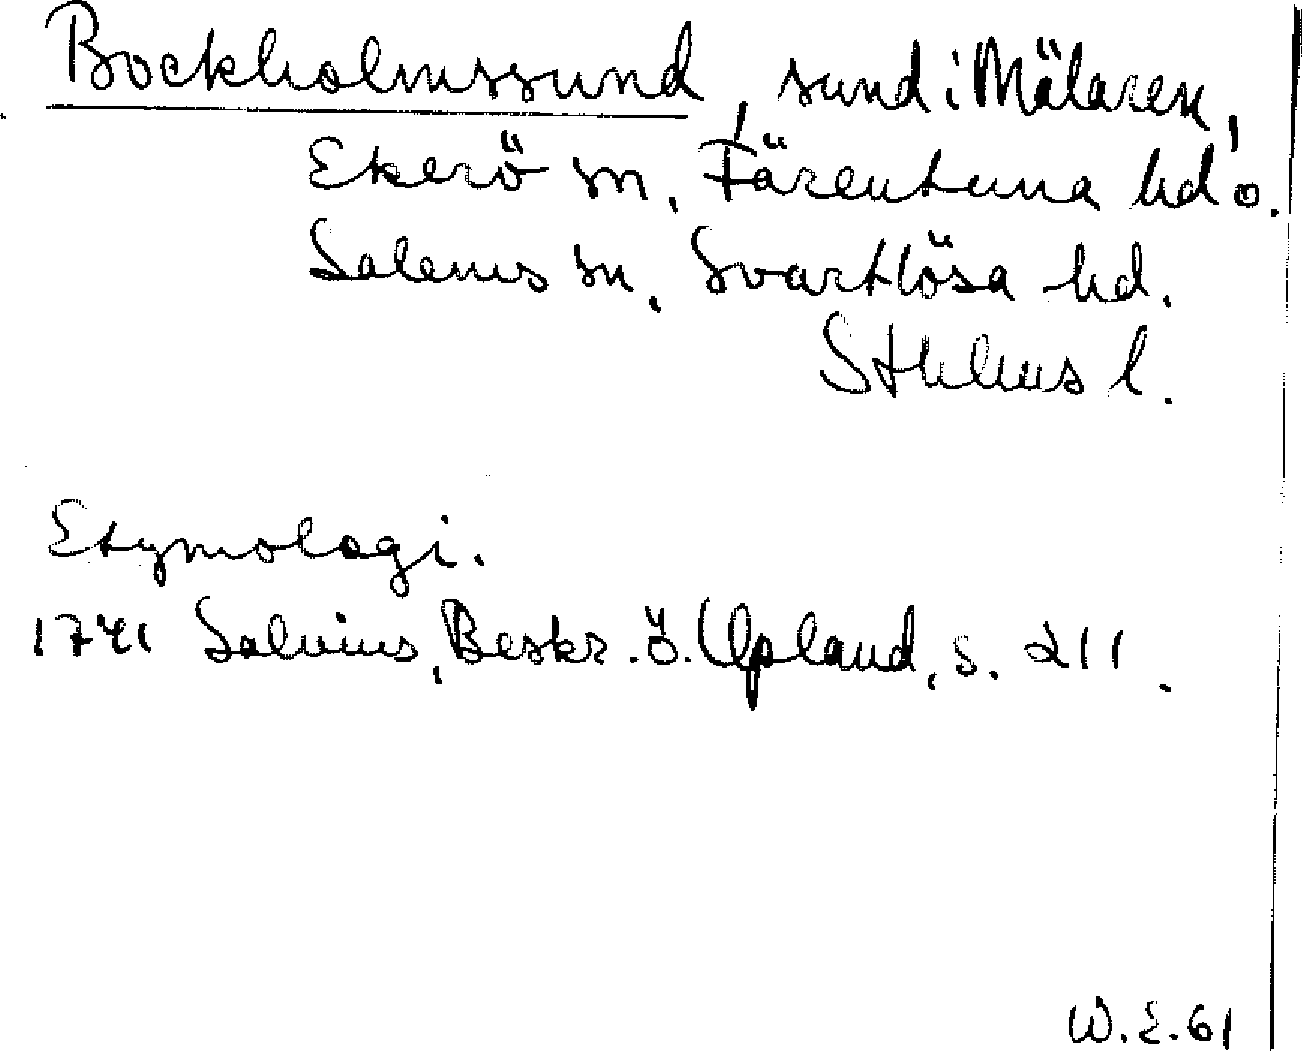 Bockholmssund, sund i Mälaren,
Ekerö sn, Färentuna hd o.
Salems sn, Svartlösa hd.
Sthlms l.
Etymologi.
1741 Salvius, Beskr. ö. Upland, s. 211.
W.E.61